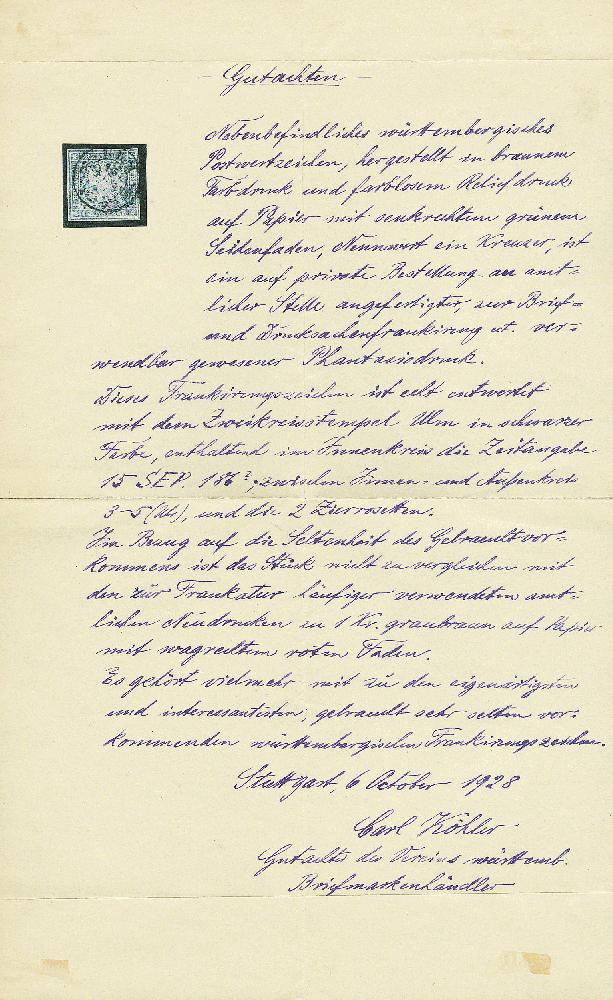 – Gutachten –
Nebenbefindliches württembergisches
Postwertzeichen, hergestellt in braunem
Farbdruck und farblosem Reliefdruck
auf Papier mit senkrechtem grünem
Seidenfaden, Nennwert ein Kreuzer, ist
ein auf private Bestellung an amt=
licher Stelle angefertigter, zur Brief=
und Drucksachenfrankirung ver=
wendbar gewesener Phantasiedruck.
Dieses Frankirungszeichen ist echt entwertet
mit dem Zweikreisstempel Ulm in schwarzer
Farbe, enthaltend im Innenkreis die Zeitangabe
15 SEP. 186?, zwischen Innen- und Außenkreis
3-5 (Uhr), und die 2 Zierrosetten.
Im Bezug auf die Seltenheit des Gebrauchtvor=
kommens ist das Stück nicht zu vergleichen mit
den zur Frankatur häufiger verwendeten amt=
lichen Neudrucken zu 1 Kr. graubraun auf Papier
mit wagrechtem roten Faden.
Es gehört vielmehr mit zu den eigenartigsten
und interessantesten, gebraucht sehr selten vor=
kommenden württembergischen Frankirungszeichen.
Stuttgart, 6 October 1928
Carl Köhler
Gutachter des Vereins württemb.
Briefmarkenhändler